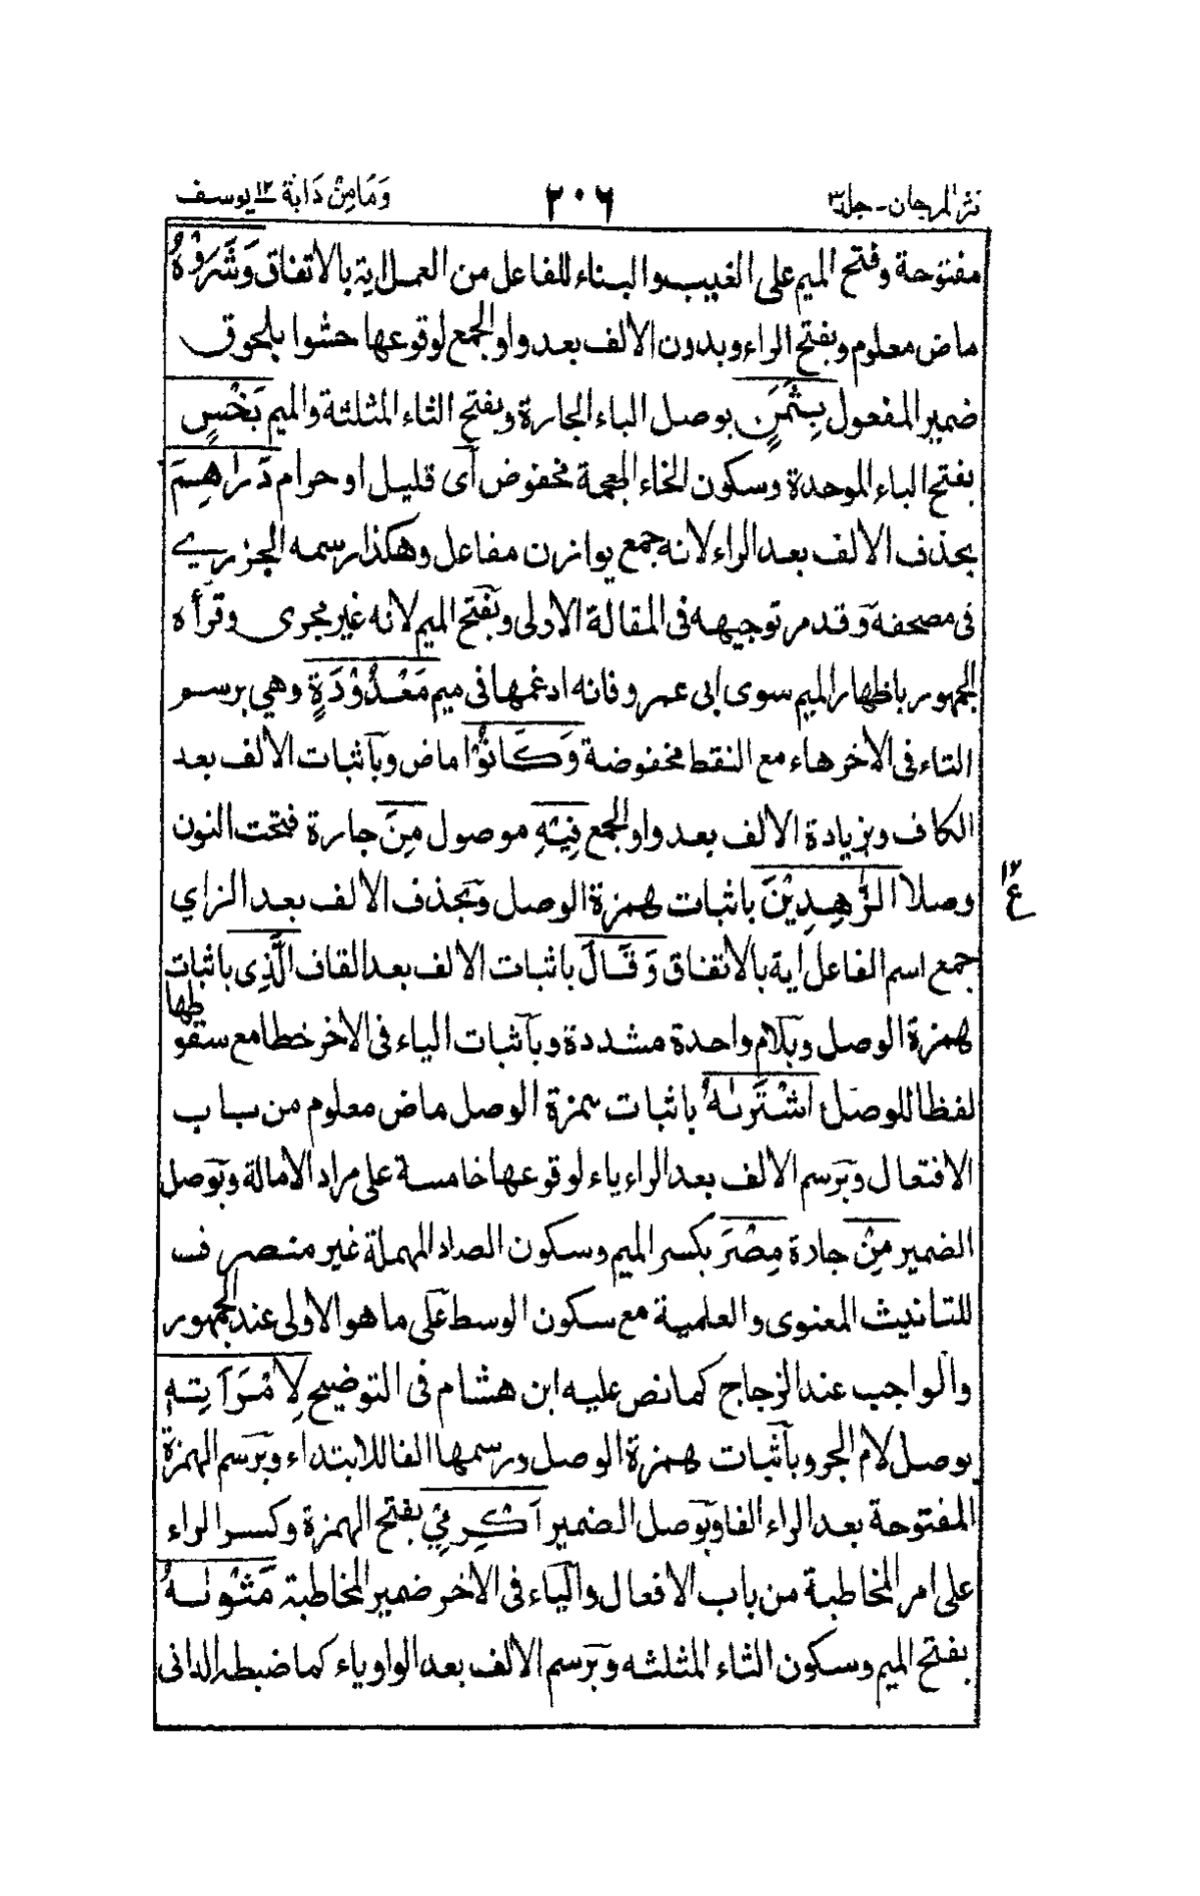 نثر المرجان - جلد ٣
٢٠٦
وَمَا مِنْ دَابَّة ١٢ يوسف
مفتوحة وفتح الميم على الغيب والبناء للفاعل من العمل اية بالاتفاق وَشَرَوْهُ
ماض معلوم وبفتح الراء وبدون الالف بعد واو الجمع لوقوعها حشوا بلحوق
ضمير المفعول بِثَمَنٍ بوصل الباء الجارة وبفتح الثاء المثلثة والميم بَخْسٍ
بفتح الباء الموحدة وسكون الخاء المعجمة مخفوض اى قليل او حرام دَرٰاهِمَ
بحذف الالف بعد الراء لانه جمع يوازن مفاعل وهكذا رسمه الجزرى
فى مصحفه وقد مر توجيهه فى المقالة الاولى وبفتح الميم لانه غير مجرى وقرأه
الجمهور باظهار الميم سوى ابى عمرو فانه ادغمها فى ميم مَعْدُوْدَةٍ وهي برسم
التاء فى الاخر هاء مع النقط مخفوضة وَكَانُوْا ماض وباثبات الالف بعد
الكاف وبزيادة الالف بعد واو الجمع فِيْهِ موصول مِنَ جارة فتحت النون
وصلا الزّٰهِدِيْنَ باثبات همزة الوصل وبحذف الالف بعد الزاي
١٢
ع
جمع اسم الفاعل اية بالاتفاق وَقَالَ باثبات الالف بعد القاف الَّذِى باثبات
همزة الوصل وبلام واحدة مشددة وباثبات الياء فى الاخر خطا مع سقوطها
لفظا للوصل اشْتَرٰىهُ باثبات همزة الوصل ماض معلوم من باب
الافتعال وبرسم الالف بعد الراء ياء لوقوعها خامسة على مراد الامالة وبوصل
الضمير مِنْ جارة مِصْرَ بكسر الميم وسكون الصاد المهملة غير منصرف
للتانيث المعنوى والعلمية مع سكون الوسط على ما هو الاولى عند الجمهور
والواجب عند الزجاج كما نص عليه ابن هشام فى التوضيح لِامْرَاَتِهٖ
بوصل لام الجر وباثبات همزة الوصل ورسمها الفا للابتداء وبرسم الهمزة
المفتوحة بعد الراء الفا وبوصل الضمير اَكْرِمِيْ بفتح الهمزة وكسر الراء
على امر المخاطبة من باب الافعال والياء فى الاخر ضمير المخاطبة مَثْوٰىهُ
بفتح الميم وسكون الثاء المثلثه وبرسم الالف بعد الواو ياء كما ضبطه الدانى